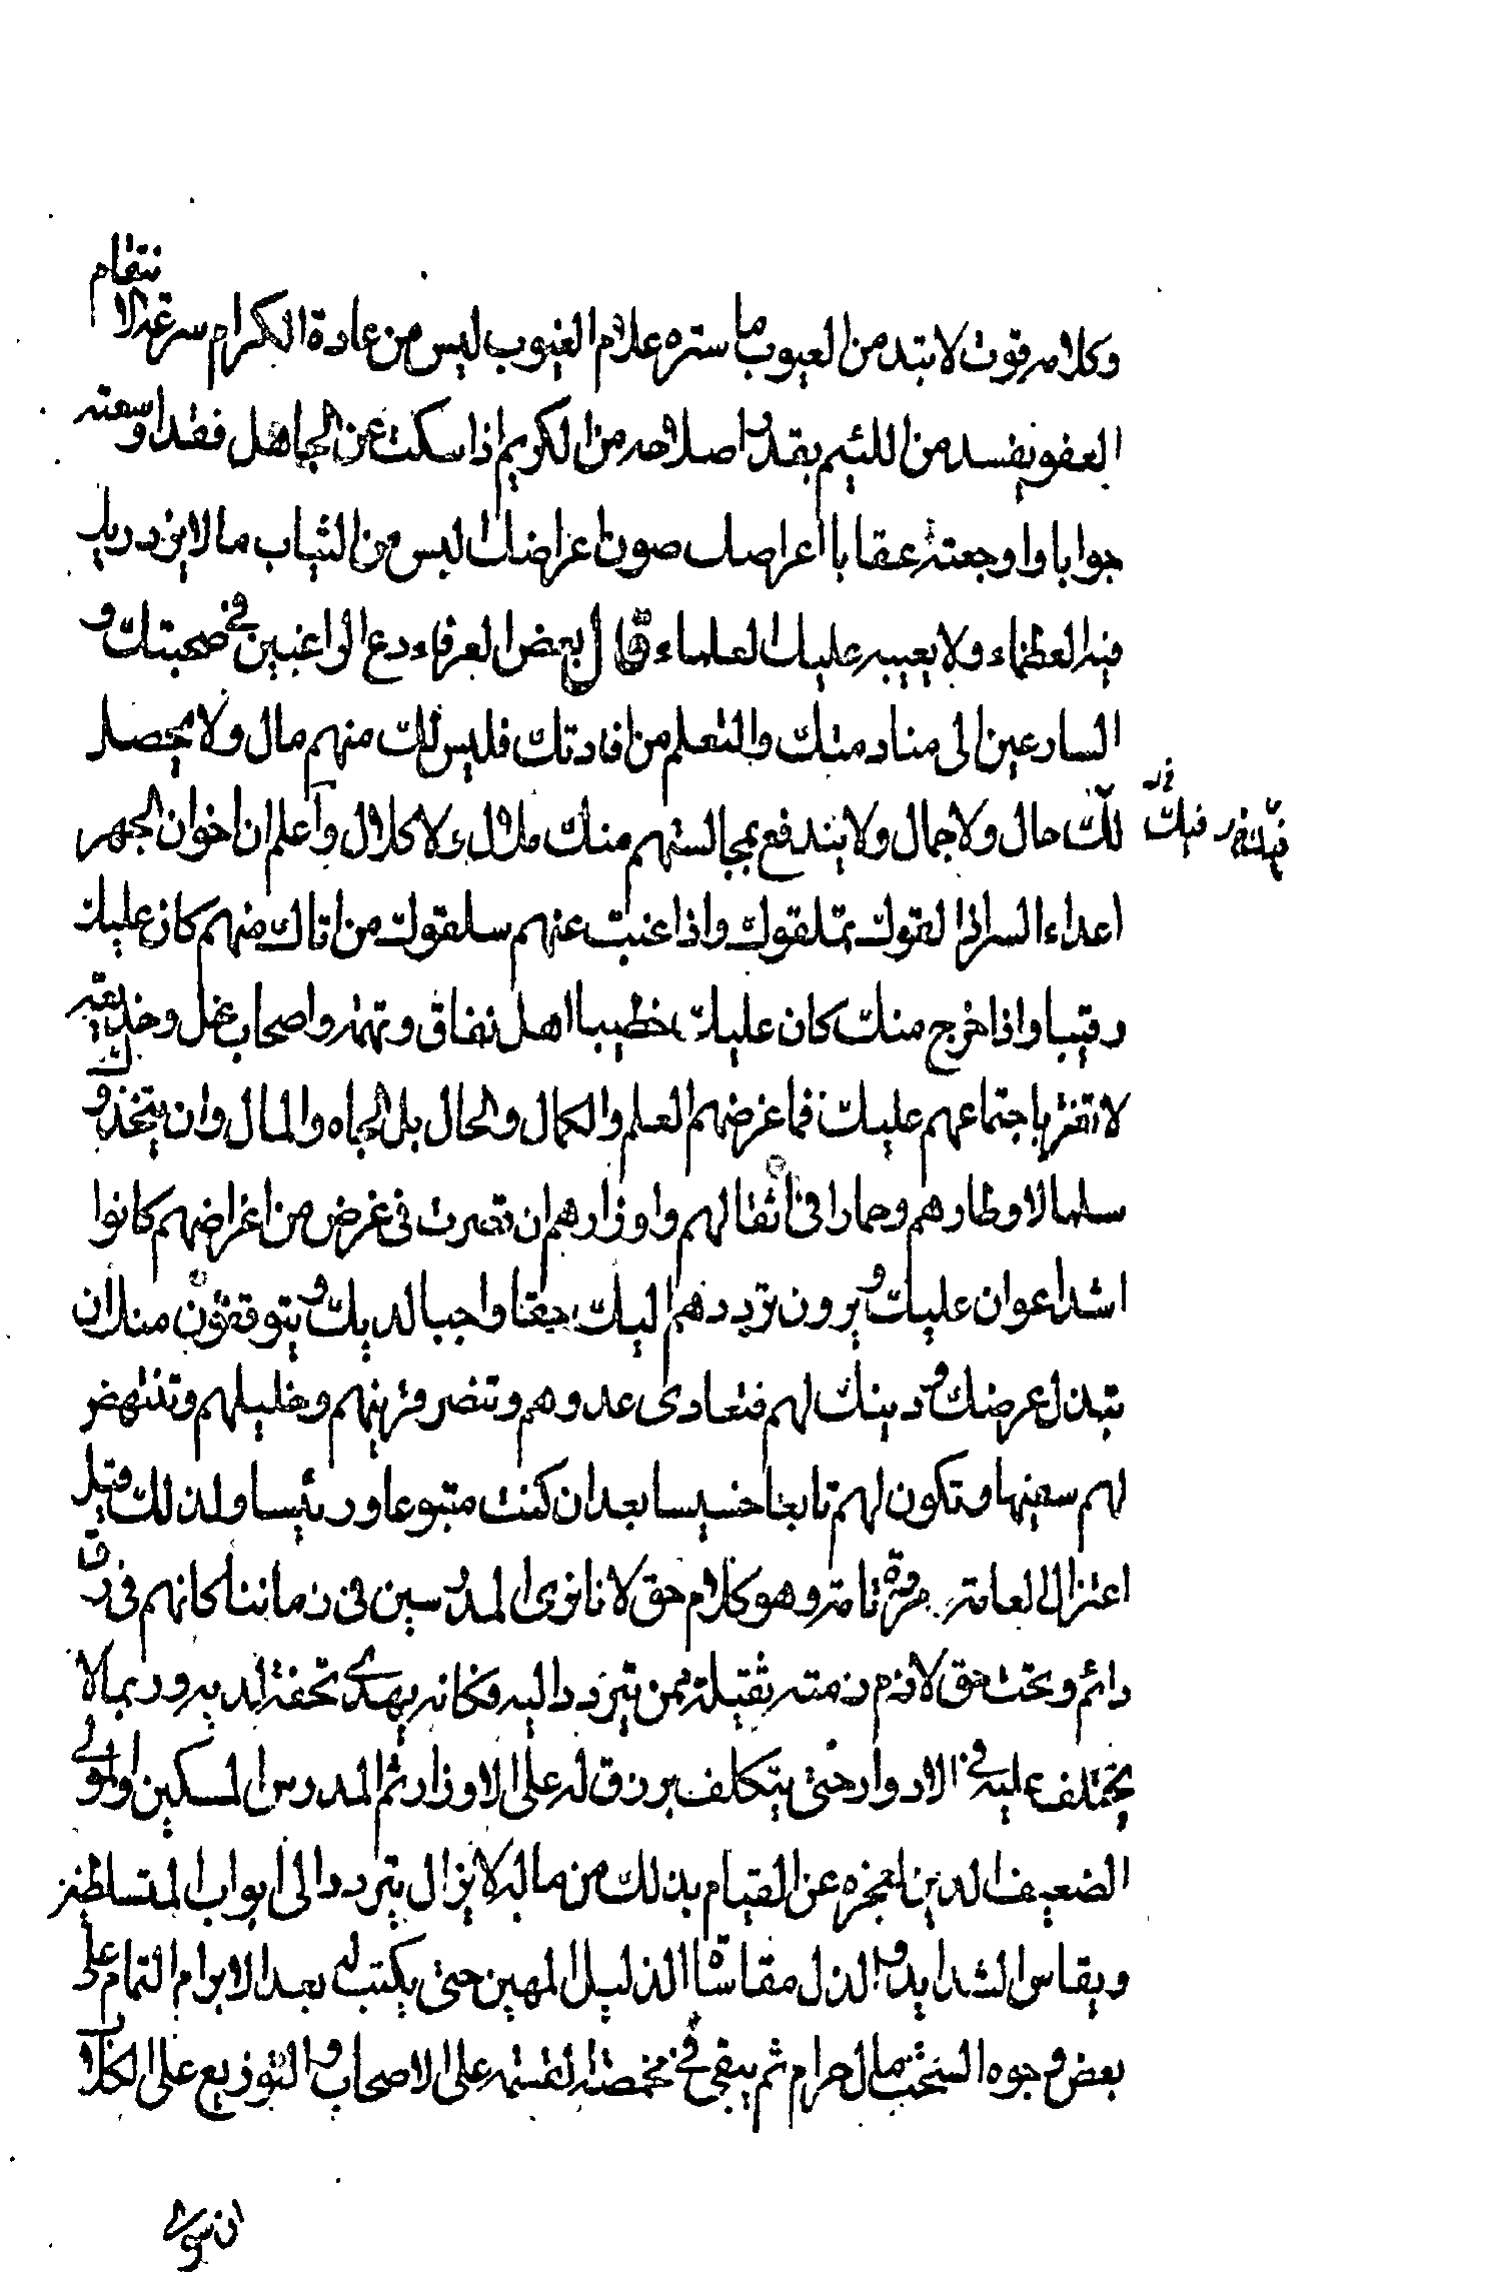 وكلامه قوت لا تبد من العيوب ما ستره علام الغيوب ليس من عادة الكرام سرعة الانتقام
العفو يفسد من اللئيم بقدر اصلاحه من الكريم اذا سكت عن الجاهل فقد اوسعته
جوابا واوجعته عقابا صون اعراضك البس من الثياب ما لا يزدريك
فيه العظماء ولا يعيبه عليك العلماء قال بعض العرفاء دع الراغبين في صحبتك و
السارعين الى منادمتك والتعلم من افادتك فليس لك منهم مال ولا يحصل
لك حال ولا جمال ولا يندفع بمجالستهم منك ملال ولا كلال واعلم ان اخوان الجهر
اعداء السر اذا لقوك تملقوك واذا غبت عنهم سلقوك من اتاك منهم كان عليك
رقيبا واذا خرج منك كان عليك خطيبا اهل نفاق ونميمة واصحاب غل وخديعة
لا تغتر باجتماعهم عليك فما غرضهم العلم والكمال والحال بل الجاه والمال وان يتخذوك
سلما لاوطارهم وحمارا في اثقالهم واوزارهم ان قصرت في غرض من اغراضهم كانوا
اشد اعوان عليك و يرون ترددهم اليك حقا واجبا لديك و يتوقفون منك ان
تبذل عرضك ودينك لهم فتعادى عدوهم وتنصر قرينهم وخليلهم وتنتهض
لهم سفيها وتكون لهم تابعا خسيسا بعد ان كنت متبوعا ورئيسا ولذلك قيل
اعتزال العامة مروة تامة وهو كلام حق لانا نرى المدرسين في زماننا كانهم في رق
دائم وتحت حق لازم ذمته ثقيلة ممن يتردد اليه فكانه يهدى تحفة لديه وربما لا
يختلف عليه في الادوار حتى يتكلف برزق له على الاوزار ثم المدرس المسكين والمولى
الضعيف الدين لعجزه عن القيام بذلك من ماله لا يزال يتردد الى ابواب المتسلطين
ويقاس الشدايد والذل مقاساة الذليل المهين حتى يكتب له بعد الابرام التمام على
بعض وجوه السحت مال حرام ثم يبقى في مخمصة القسمة على الاصحاب والتوزيع على الكلاب
ان سوى